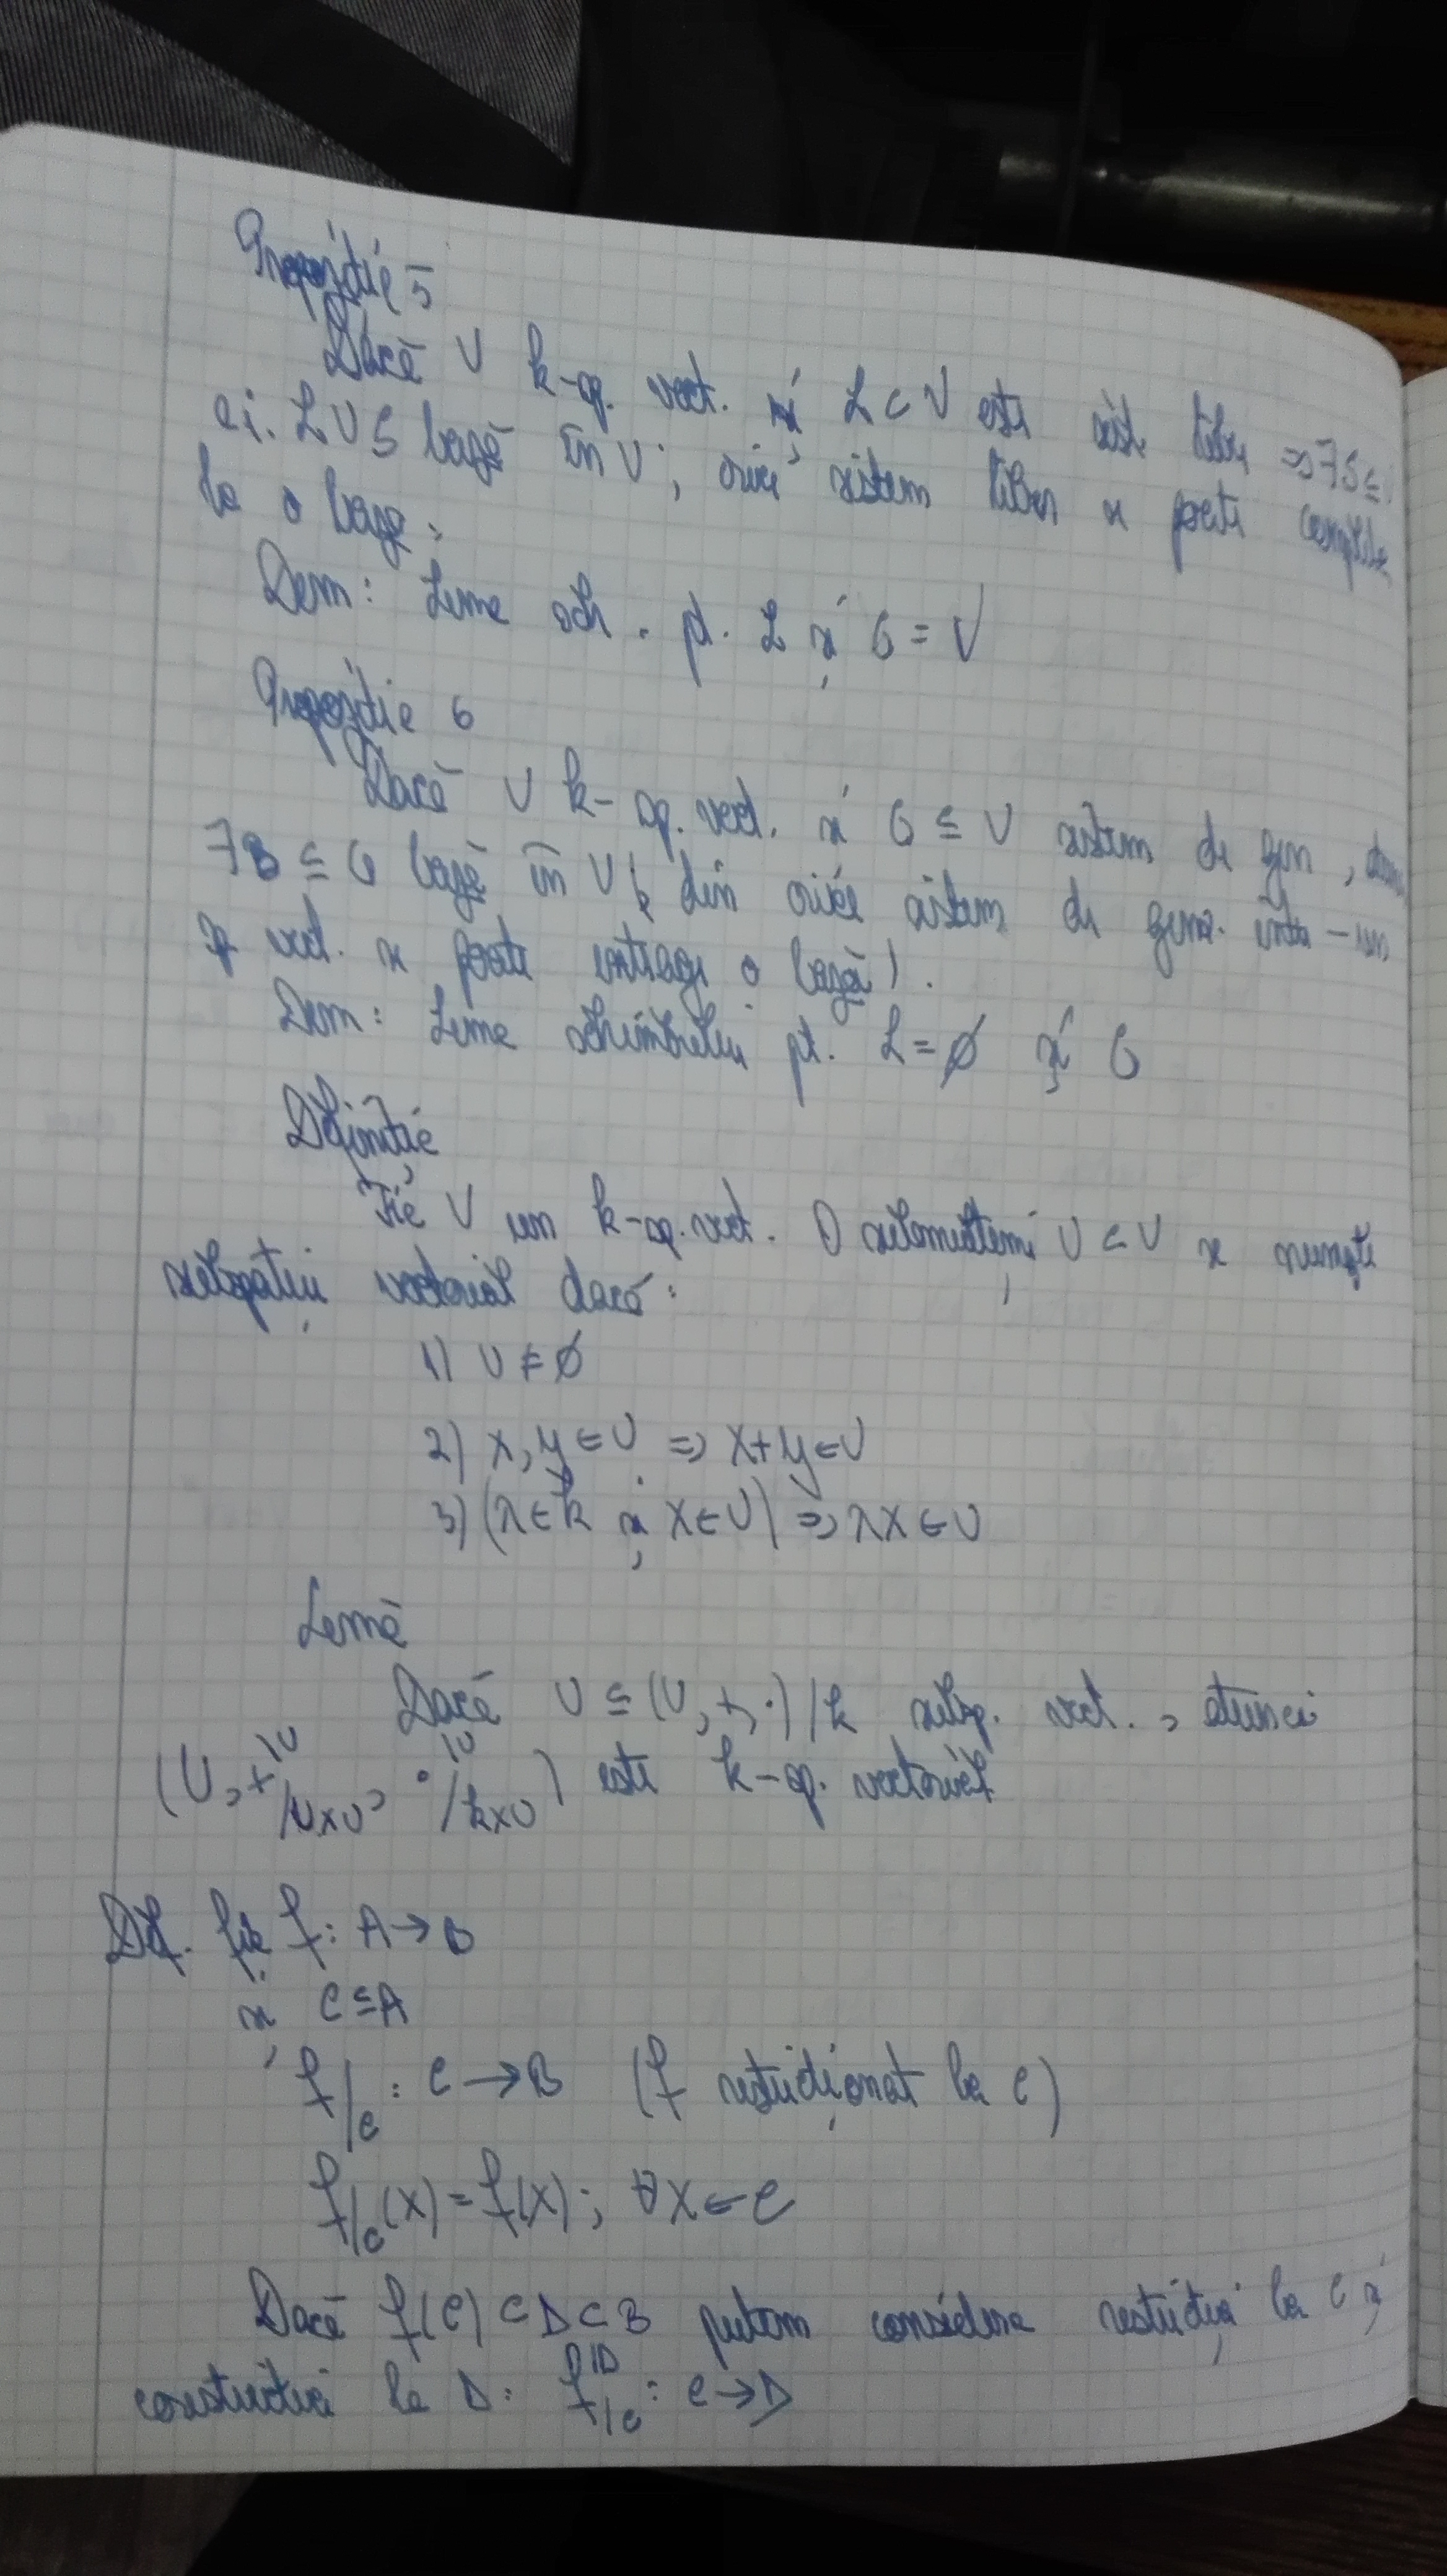 Propoziție 5
Dacă V k-sp. vect. și L ⊂ V este sist. liber ⇒ ∃ S ⊆
a.î. L ∪ S bază în V; orice sistem liber se poate
la o bază.
Dem: Lema sch. pt. L și G = V
Propoziție 6
Dacă V k-sp. vect. și G ⊆ V sistem de gen,
∃ B ⊆ G bază în V (din orice sistem de gener. într-un
sp vect. se poate extrage o bază).
Dem: Lema schimbului pt. L = ∅ și G
Definiție
Fie V un k-sp. vect. O submulțime U ⊂ V se numește
subspațiu vectorial dacă:
1) U ≠ ∅
2) x, y ∈ U ⇒ x+y ∈ U
3) (λ ∈ k și x ∈ U) ⇒ λx ∈ U
Lemă
Dacă U ⊆ (V, +, ·)/k subsp. vect., atunci
(U, +|ᵁ/U×U, ·|ᵁ/k×U) este k-sp. vectorial
Def. fie f: A → B
și C ⊆ A
f/C : C → B (f restricționat la C)
f/C(x) = f(x); ∀x ∈ C
Dacă f(C) ⊂ D ⊂ B putem considera restricția la C și
la D: f|ᴰ/C : C → D